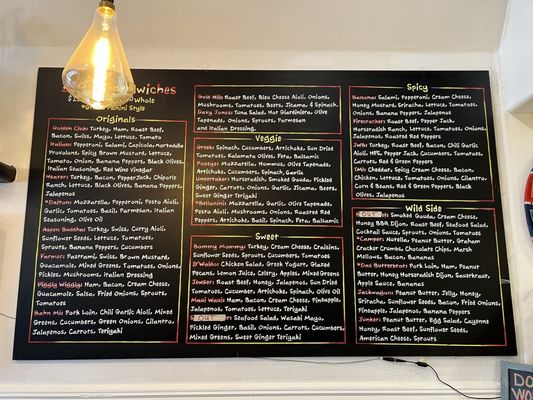 Sandwiches
Whole
Panini Style
Originals
Golden Club: Turkey, Ham, Roast Beef,
Bacon, Swiss, Mayo, Lettuce, Tomato
Italian: Pepperoni, Salami, Capicola, Mortadella
Provolone, Spicy Brown Mustard, Lettuce,
Tomato, Onion, Banana Peppers, Black Olives,
Italian Seasoning, Red Wine Vinegar
Heater: Turkey, Bacon, Pepper Jack, Chipotle
Ranch, Lettuce, Black Olives, Banana Peppers,
Jalapenos
Mozzarella, Pepperoni, Pesto Aioli,
Garlic, Tomatoes, Basil, Parmesan, Italian
Seasoning, Olive Oil
Aspen Buddha: Turkey, Swiss, Curry Aioli,
Sunflower Seeds, Lettuce, Tomatoes,
Sprouts, Banana Peppers, Cucumbers
Farmer: Pastrami, Swiss, Brown Mustard,
Guacamole, Mixed Greens, Tomatoes, Onions,
Pickles, Mushrooms, Italian Dressing
Piggly Wiggly: Ham, Bacon, Cream Cheese,
Guacamole, Salsa, Fried Onions, Sprouts,
Tomatoes
Bahn Mi: Pork Loin, Chili Garlic Aioli, Mixed
Greens, Cucumbers, Green Onions, Cilantro,
Jalapenos, Carrots, Teriyaki
Gold Hill: Roast Beef, Bleu Cheese Aioli, Onions,
Mushrooms, Tomatoes, Beets, Jicama, & Spinach
Davy Jones: Tuna Salad, Hot Giardiniera, Olive
Tapenade, Onions, Sprouts, Parmesan
and Italian Dressing.
Veggie
Greek: Spinach, Cucumbers, Artichokes, Sun Dried
Tomatoes, Kalamata Olives, Feta, Balsamic
Popeye: Mozzarella, Hummus, Olive Tapenade,
Artichoke, Cucumbers, Spinach, Garlic
Undertaker: Hummus, Smoked Gouda, Pickled
Ginger, Carrots, Onions, Garlic, Jicama, Beets,
Sweet Ginger Teriyaki
Mozzarella, Tomatoes, Olive Tapenade,
Pesto Aioli, Mushrooms, Onions, Roasted Red
Peppers, Artichoke, Basil, Spinach, Feta, Balsamic
Sweet
Bammy Mammy: Turkey, Cream Cheese, Craisins,
Sunflower Seeds, Sprouts, Cucumbers, Tomatoes
Chicken Salad, Greek Yogurt, Glazed
Pecans, Lemon Juice, Celery, Apples, Mixed Greens
Roast Beef, Honey, Jalapenos, Sun Dried
Tomatoes, Cucumbers, Artichoke, Spinach, Olive Oil
Maui Waui: Ham, Bacon, Cream Cheese, Pineapple,
Jalapenos, Tomatoes, Lettuce, Teriyaki
Seafood Salad, Wasabi Mayo,
Pickled Ginger, Basil, Onions, Carrots, Cucumbers,
Mixed Greens, Sweet Ginger Teriyaki
Spicy
Salami, Pepperoni, Cream Cheese,
Honey Mustard, Sriracha, Lettuce, Tomatoes,
Onions, Banana Peppers, Jalapenos
Firecracker: Roast Beef, Pepper Jack,
Horseradish Ranch, Lettuce, Tomatoes, Onions,
Jalapenos, Roasted Red Peppers, Black Olives
Turkey, Roast Beef, Bacon, Chili Garlic
Aioli, Pepper Jack, Cucumbers, Tomatoes,
Carrots, Red & Green Peppers
Cheddar, Spicy Cream Cheese, Bacon,
Chicken, Lettuce, Tomatoes, Onions, Cilantro,
Corn & Beans, Red & Green Peppers, Black
Olives, Jalapenos
Wild Side
Smoked Gouda, Cream Cheese,
Honey BBQ Dijon, Roast Beef, Seafood Salad,
Cocktail Sauce, Sprouts, Onions, Tomatoes
*Camper: Nutella, Peanut Butter, Graham
Cracker Crumbs, Chocolate Chips, Marsh
Mellows, Bacon, Bananas
Pork Loin, Ham, Peanut
Butter, Honey, Horseradish Dijon, Sauerkraut,
Apple Sauce, Bananas
Peanut Butter, Jelly, Honey,
Sriracha, Sunflower Seeds, Bacon, Fried Onions,
Jalapenos, Banana Peppers
Junker: Peanut Butter, Egg Salad, Cayenne
Honey, Roast Beef, Sunflower Seeds,
American Cheese, Sprouts